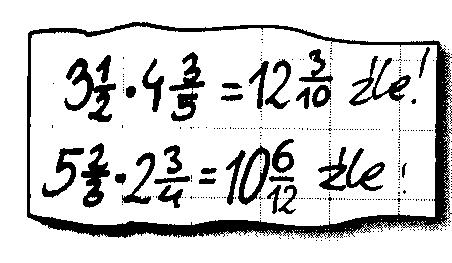 3 1/2 · 4 3/5 = 12 3/10 źle!
5 2/3 · 2 3/4 = 10 6/12 źle!